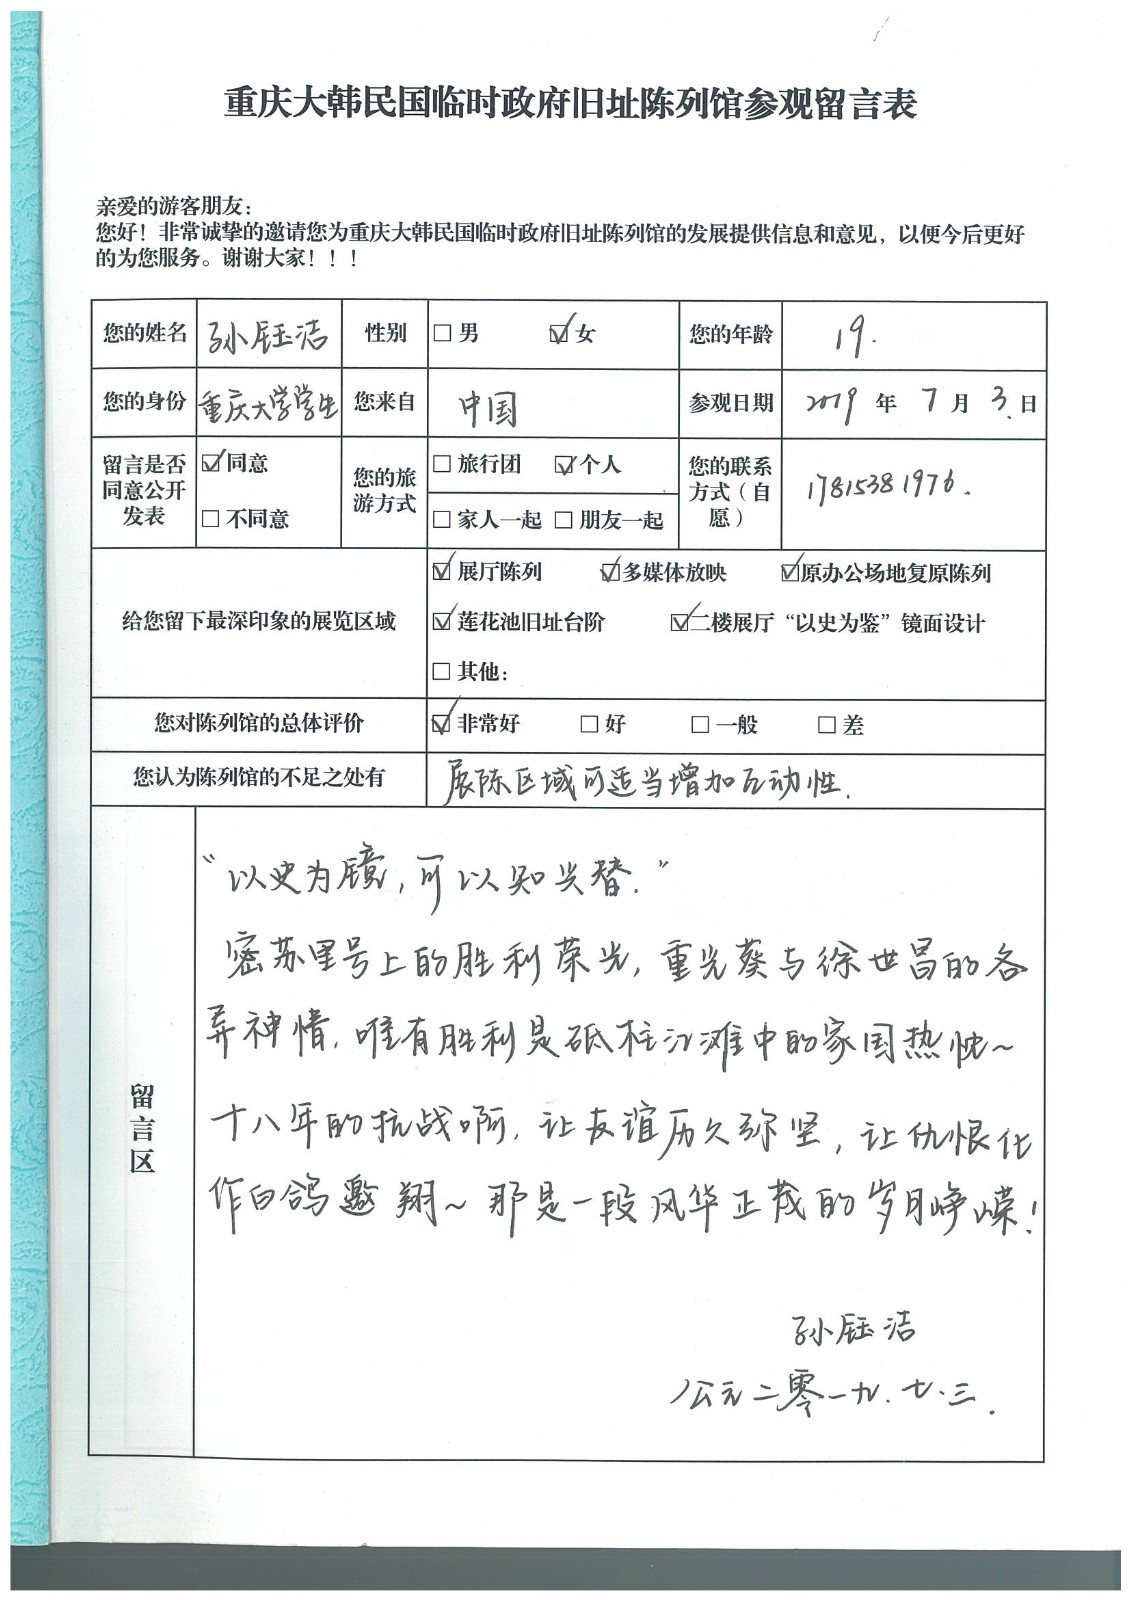 重庆大韩民国临时政府旧址陈列馆参观留言表
亲爱的游客朋友：
您好！非常诚挚的邀请您为重庆大韩民国临时政府旧址陈列馆的发展提供信息和意见，以便今后更好
的为您服务。谢谢大家！！！
您的姓名 孙钰洁 性别 □ 男 ☑ 女 您的年龄 19.
您的身份 重庆大学学生 您来自 中国 参观日期 2019 年 7 月 3. 日
留言是否同意公开发表 ☑ 同意 □ 不同意 您的旅游方式 □ 旅行团 ☑ 个人 □ 家人一起 □ 朋友一起 您的联系方式（自愿） 17815381976.
给您留下最深印象的展览区域
☑ 展厅陈列 ☑ 多媒体放映 ☑ 原办公场地复原陈列
☑ 莲花池旧址台阶 ☑ 二楼展厅“以史为鉴”镜面设计
□ 其他：
您对陈列馆的总体评价 ☑ 非常好 □ 好 □ 一般 □ 差
您认为陈列馆的不足之处有 展陈区域可适当增加互动性.
留言区
“以史为镜，可以知兴替.”
密苏里号上的胜利荣光，重光葵与徐世昌的各
异神情，唯有胜利是砥柱江滩中的家国热忱~
十八年的抗战啊，让友谊历久弥坚，让仇恨化
作白鸽邀翔~那是一段风华正茂的岁月峥嵘！
孙钰洁
公元二零一九.七.三.